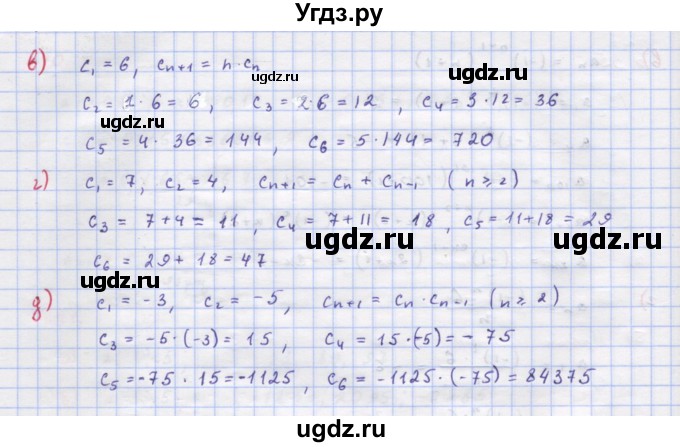 Угдз.ру
в) c₁ = 6, cₙ₊₁ = n · cₙ
c₂ = 1 · 6 = 6, c₃ = 2 · 6 = 12, c₄ = 3 · 12 = 36
ugdz.ru ugdz.ru
c₅ = 4 · 36 = 144, c₆ = 5 · 144 = 720
ugdz.ru
г) c₁ = 7, c₂ = 4, cₙ₊₁ = cₙ + cₙ₋₁ (n ≥ 2)
c₃ = 7 + 4 = 11, c₄ = 7 + 11 = 18, c₅ = 11 + 18 = 29
ugdz.ru ugdz.ru
c₆ = 29 + 18 = 47
ugdz.ru
д) c₁ = -3, c₂ = -5, cₙ₊₁ = cₙ · cₙ₋₁ (n ≥ 2)
c₃ = -5 · (-3) = 15, c₄ = 15 · (-5) = -75
c₅ = -75 · 15 = -1125, c₆ = -1125 · (-75) = 84375
ugdz.ru ugdz.ru